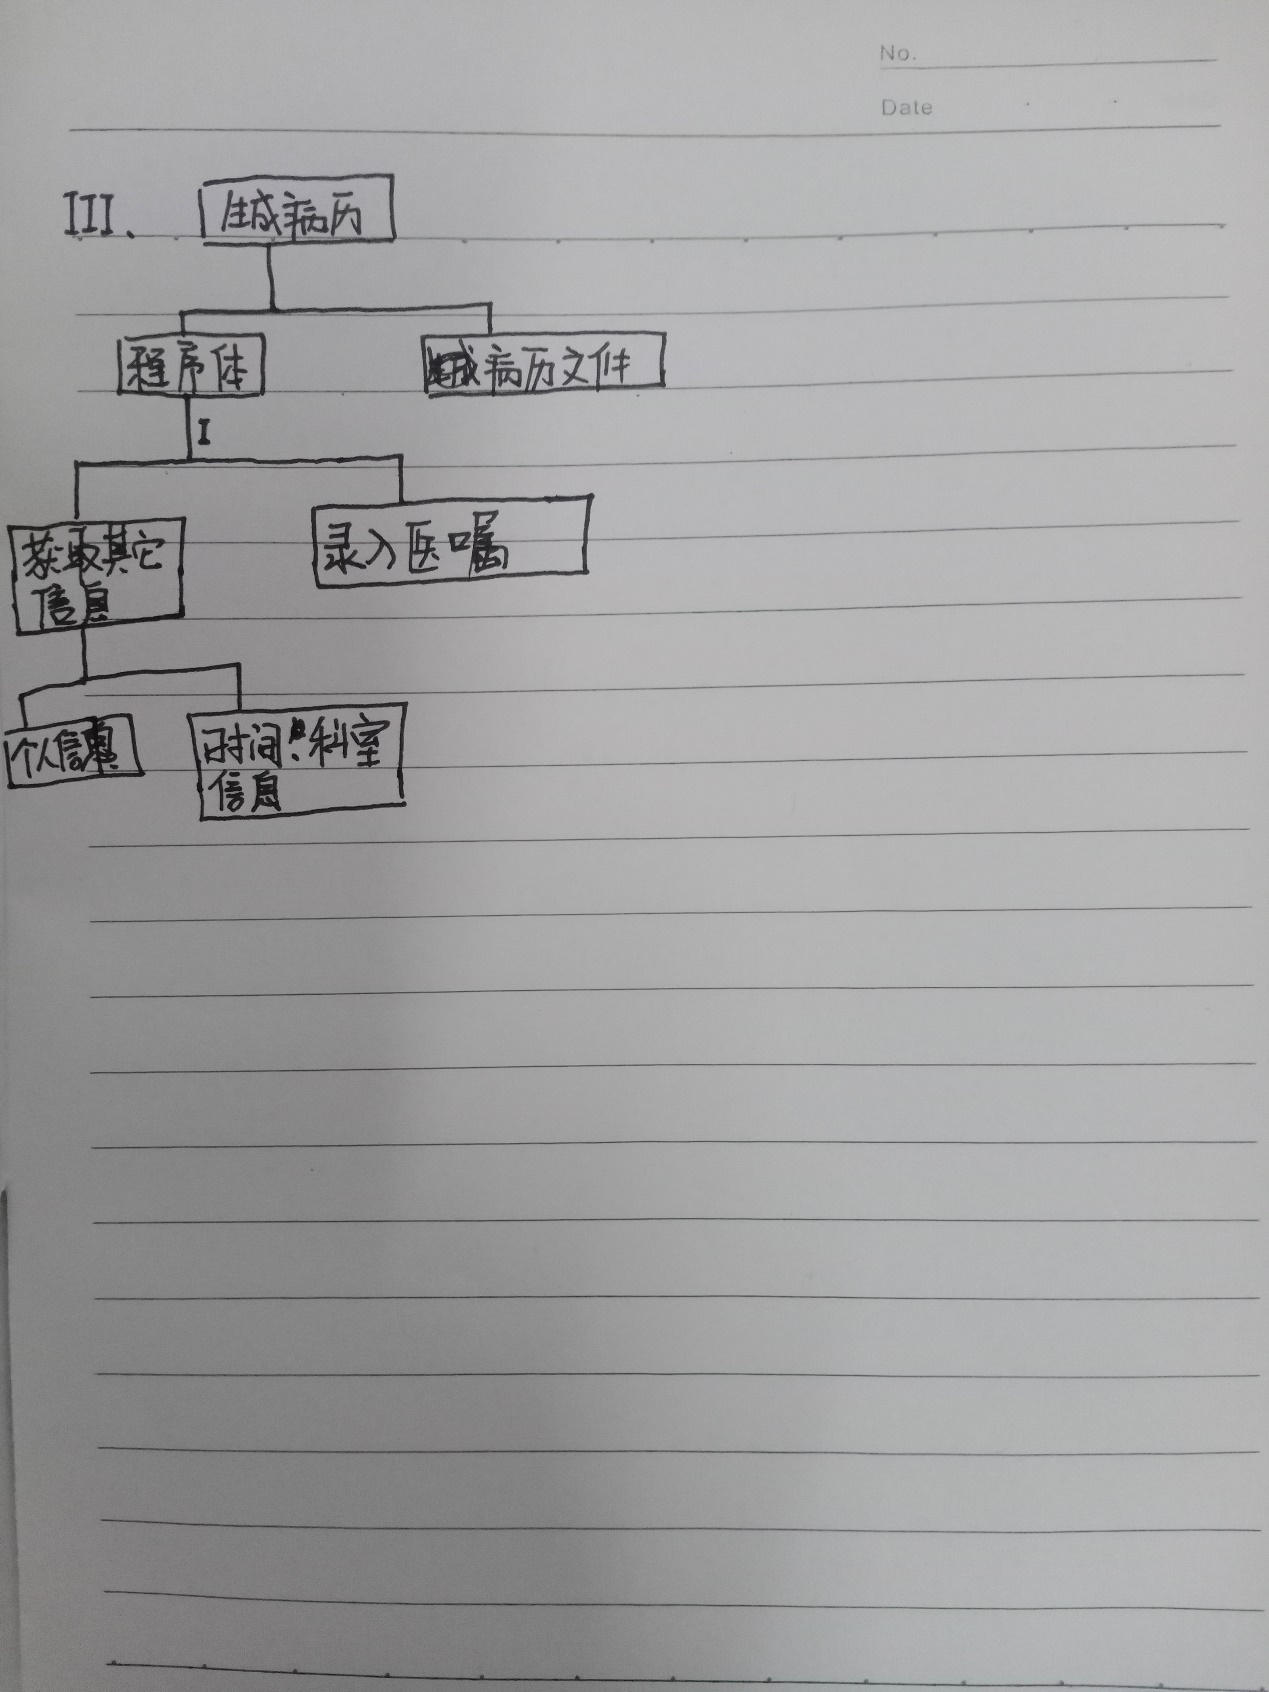 No.
Date
III、
生成病历
程序体
生成病历文件
I
获取其它
信息
录入医嘱
个人信息
时间 科室
信息